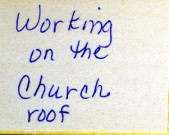 Working
on the
Church
roof